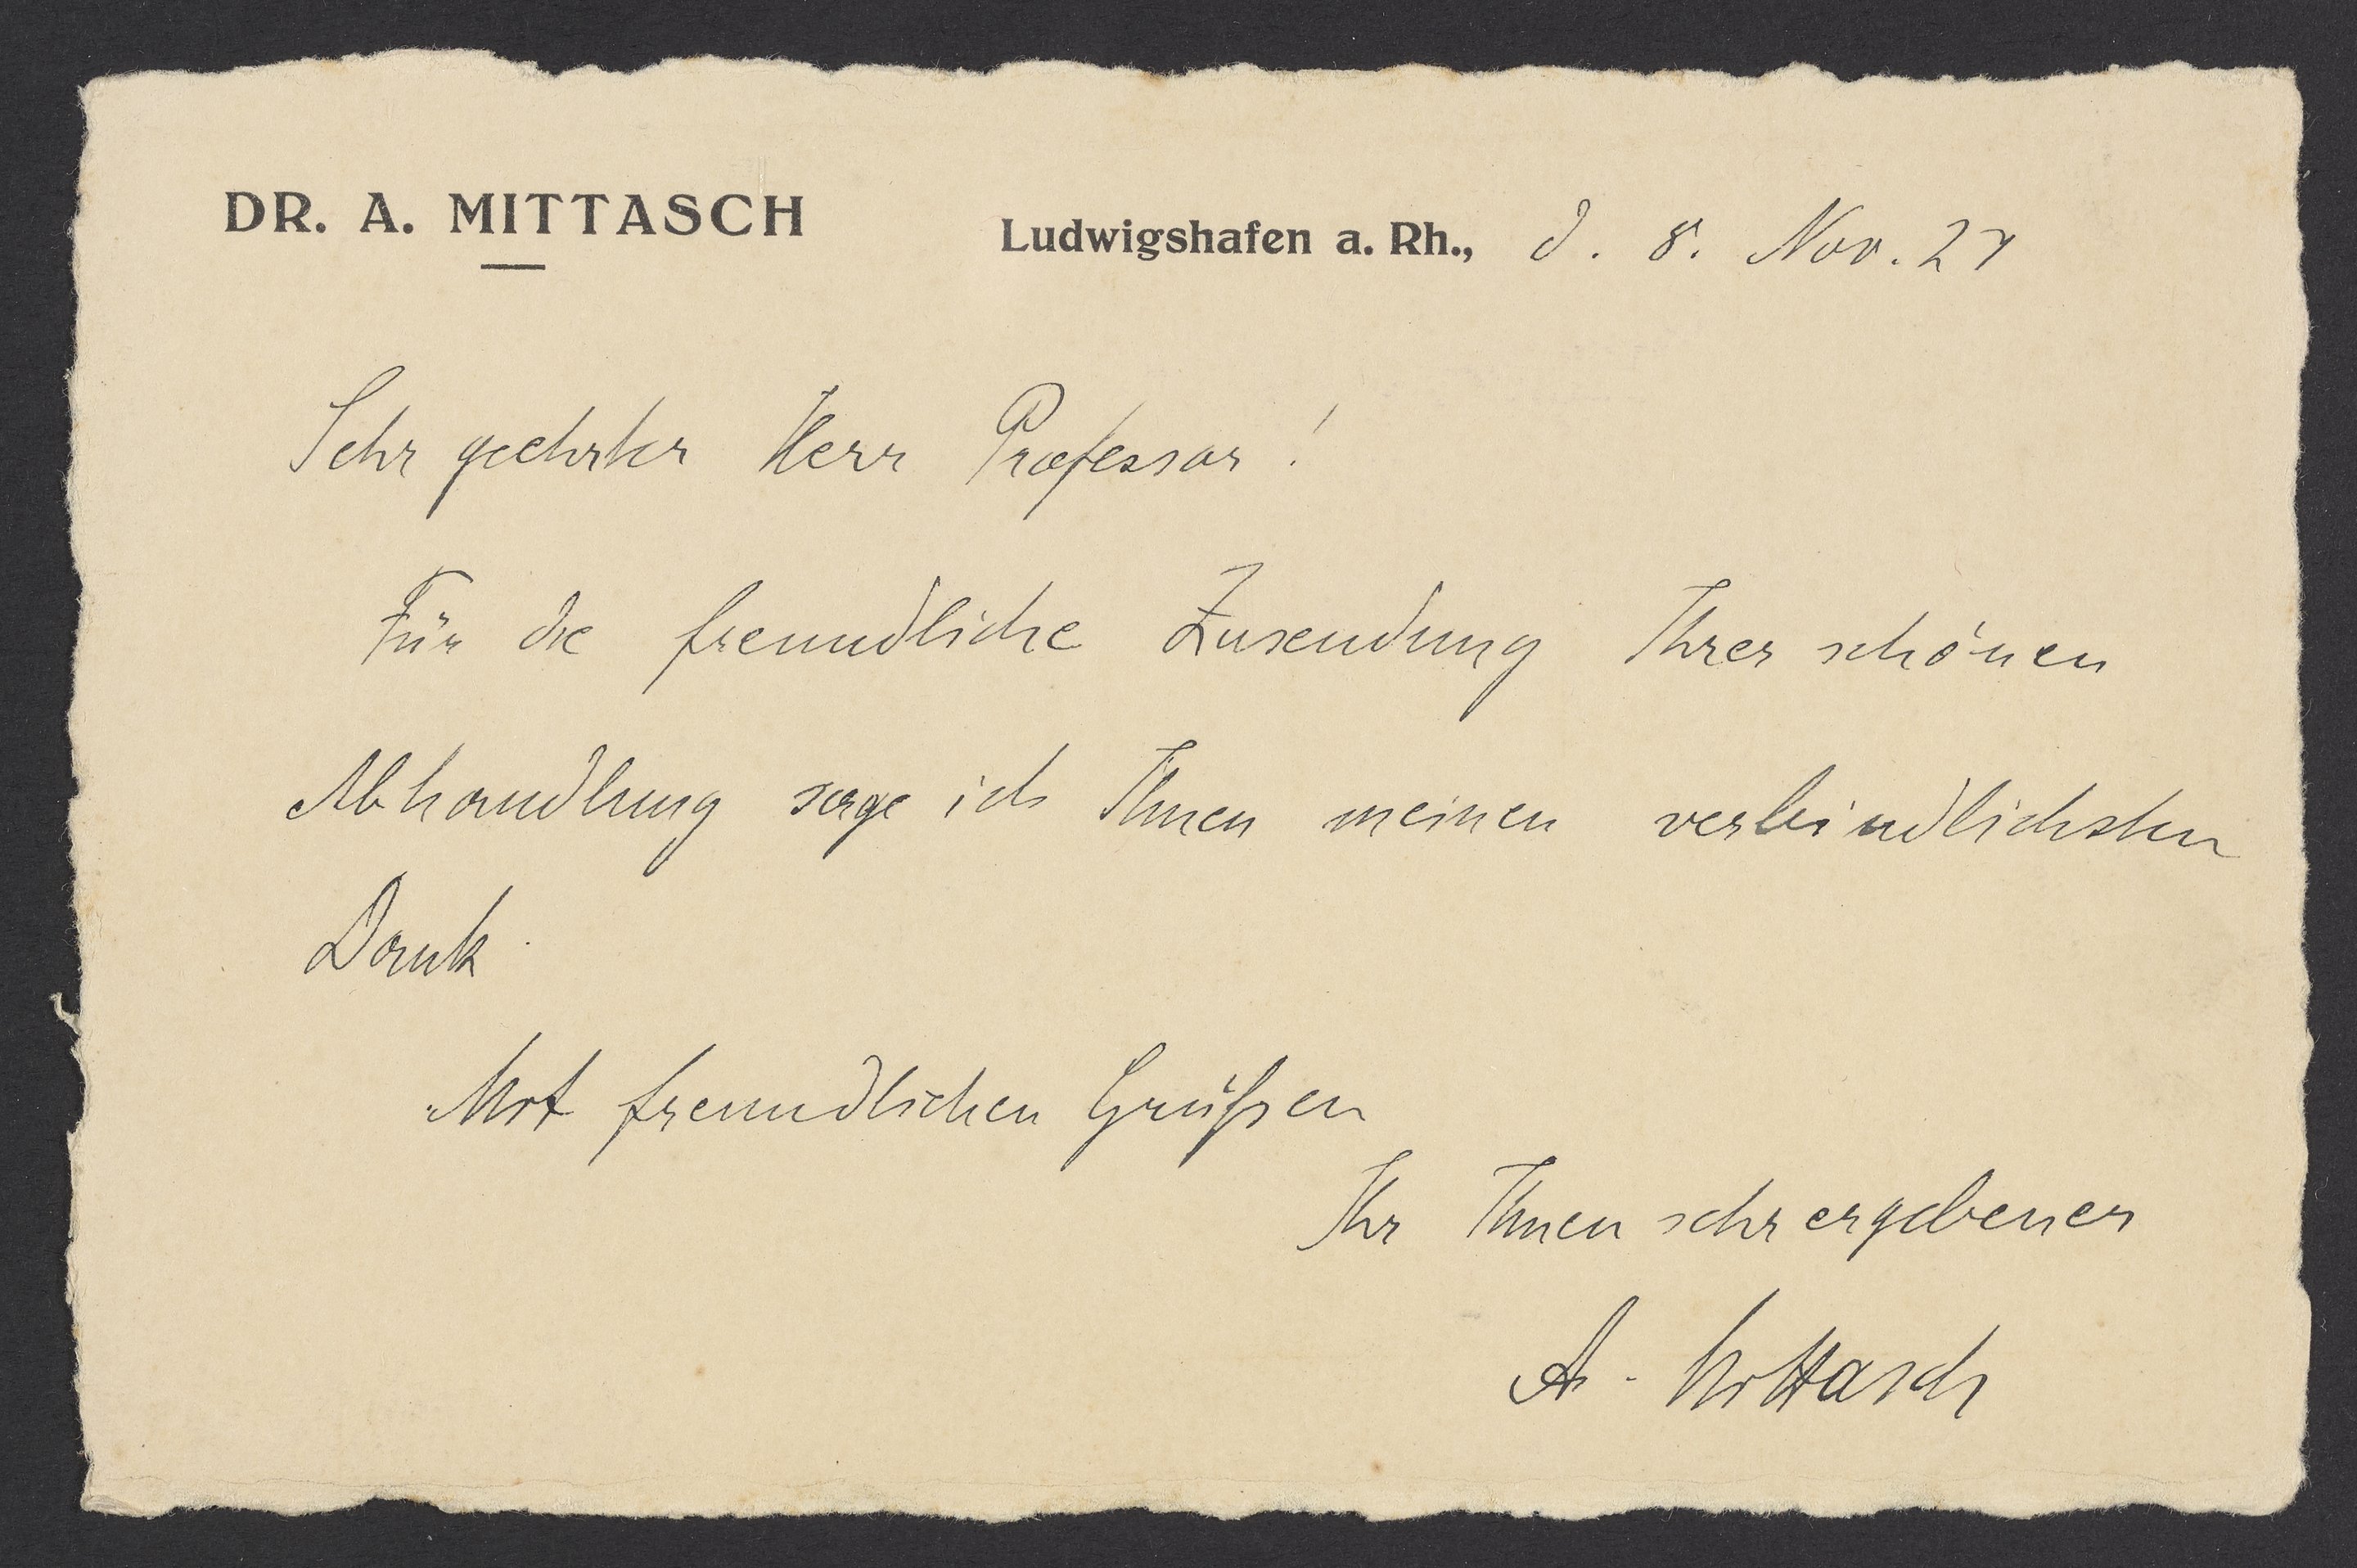 DR. A. MITTASCH
Ludwigshafen a. Rh., d. 8. Nov. 27
Sehr geehrter Herr Professor!
Für die freundliche Zusendung Ihrer schönen
Abhandlung sage ich Ihnen meinen verbindlichsten
Dank.
Mit freundlichen Grüßen
Ihr Ihnen sehr ergebener
A. Mittasch